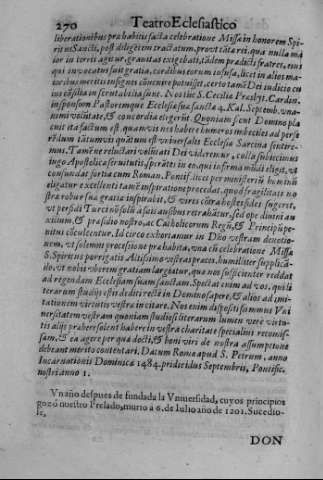 270 Teatro Eclesiastico
liberationibus præhabitis facta celebratione Missa in honorem Spi-
ritus Sancti, post diligẽtem tractatum, prout tãta rei, qua nulla ma
ior in terris agitur grauitas exigebat, tãdem prædicti fratres, cum
qui inuocatus fuit gratia, cordibus eorum infusa, licet in alios ma-
ioribus meritis insignes concurrere potuisset, certo tamẽ Dei iudicio cu
ius cõsilia inscrutabilia sunt. Nos sic S. Cecilia Præsbyt. Cardin.
in sponsum Pastoremque Ecclesia sua sancta 4. Kal. Septemb. vna-
nimi volũtate, & concordia elegerũt. Quoniam sicut Domino pla
cuit ita factum est, quamuis nos habere humeros imbecilles ad perfe
rẽdum tãtum vis quãtum est vniuersalis Ecclesia Sarcina sentire-
mus. Tamẽ ne reluctari volũtati Dei videremur, colla subiecimus
iugo Apostolica seruitutis, sperãtes in eo, qui infirma mũdi elegit, vt
confundat fortia cum Roman. Pontif. licet per ministeriũ hominũ
eligatur excellenti tamẽ inspiratione procedat, quod fragilitate no
stra robur sua gratia inspirabit, & vires cõtra hostes fidei sugeret,
vt perfidi Turci nõ solũ à suis ausibus retrahãtur, sed ope diuini au
xilium, & præsidio nostro, ac Catholicorum Regũ, & Principũ pe-
nitus cõculcentur. Id circo exhortamur in Dño vestram deuotio-
nem, vt solemni processione præhabita, vna cũ celebratione Missa
S. Spiritus porrigatis Altissimo vestras preces, humiliter supplicã-
do, vt nobis vberem gratiam largiatur, qua nos suspicienter reddat
ad regendam Ecclesiam suam sanctam. Spectat enim ad vos, qui li
terarum studijs estis dediti reddi in Domino spere, & alios ad imi-
tationem virtutis vestra incitare. Nos enim dispositi sumus Vni
uersitatem vestram quoniam studiosi literarum lumen vera virtu-
tis alijs præbere solent habere in vestra charitate speciali recomis-
sam, & ea agere per qua docti, & boni viri de nostra assumptione
debeant merito contentari. Datum Roma apud S. Petrum, anno
Incarnationis Dominica 1484. pridie idus Septembris, Pontific.
nostri anno 1.
Vn año despues de fundada la Vniuersidad, cuyos principios
gozò nuestro Prelado, murio a 6. de Iulio año de 1201. Sucedio-
le,
DON